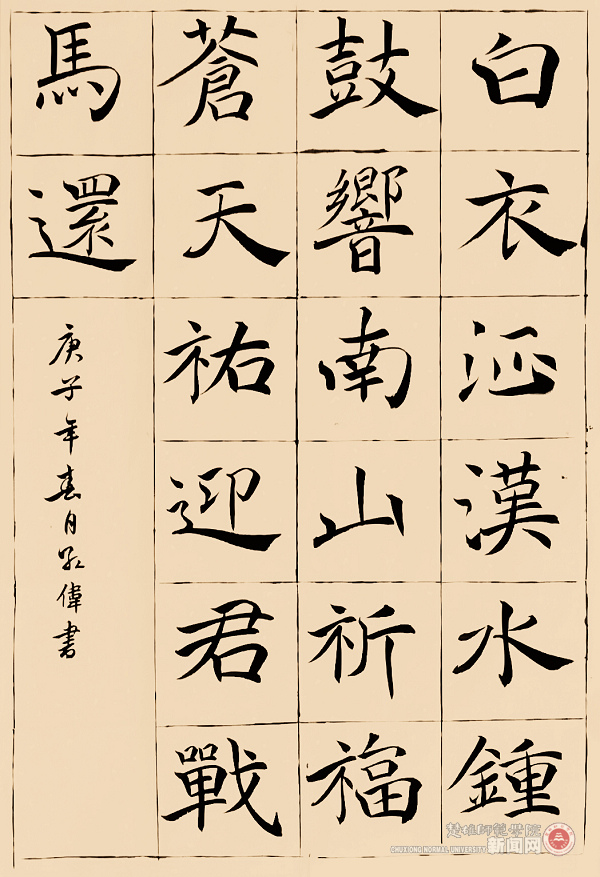 白衣漢水鍾
鼓響南山祈福
蒼天祐迎君戰
馬還
庚子年春月偉書
楚雄師範學院
CHUXIONG NORMAL UNIVERSITY
新闻网